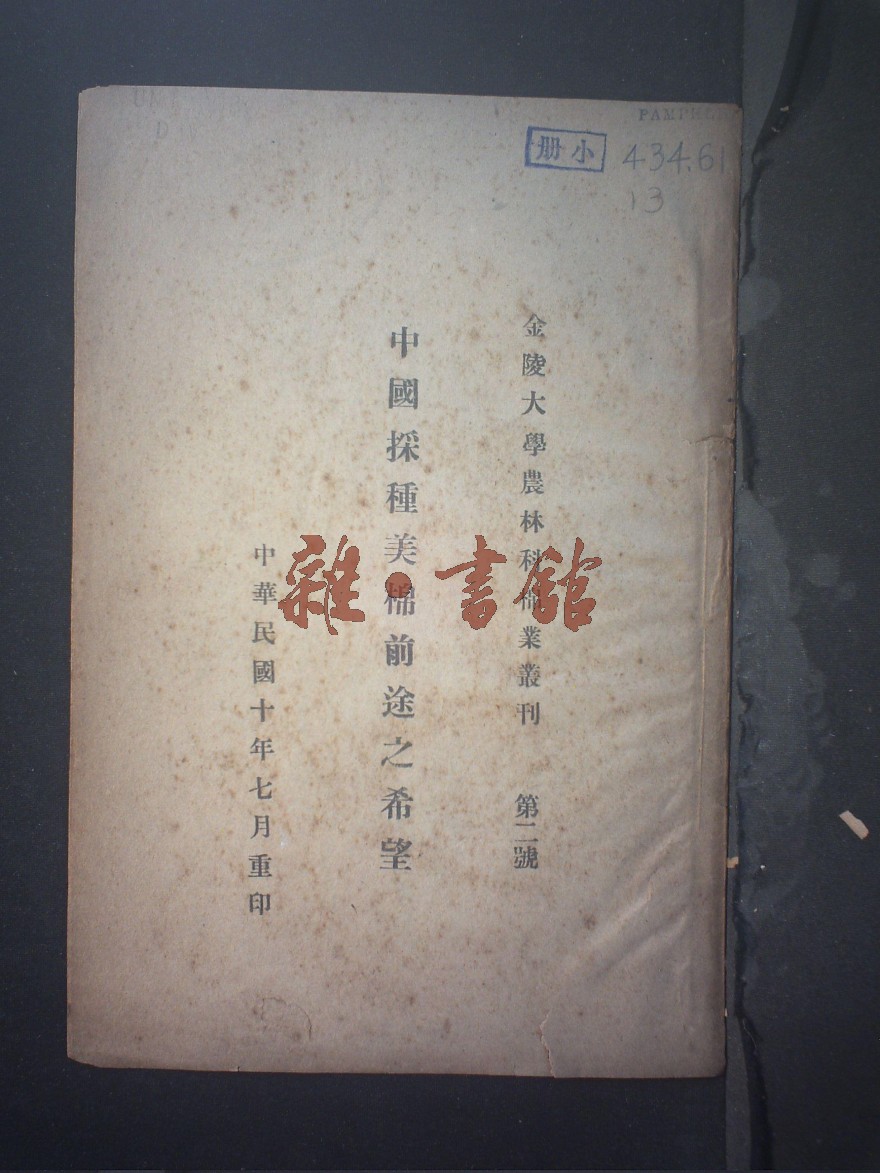 PAMPH
小册
434.61
13
金陵大學農林科棉業叢刊 第二號
中國採種美棉前途之希望
中華民國十年七月重印
雜·書館